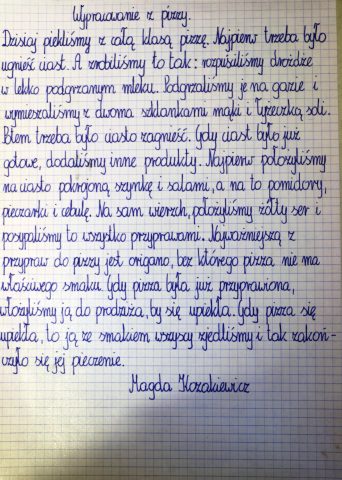 Wypracowanie z pizzy.
Dzisiaj piekliśmy z całą klasą pizzę. Najpierw trzeba było
ugnieść ciast. A zrobiliśmy to tak: rozpuściliśmy drożdże
w lekko podgrzanym mleku. Podgrzaliśmy je na gazie i
wymieszaliśmy z dwoma szklankami mąki i łyżeczką soli.
Potem trzeba było ciasto zagnieść. Gdy ciast było już
gotowe, dodaliśmy inne produkty. Najpierw położyliśmy
na ciasto pokrojoną szynkę i salami, a na to pomidory,
pieczarki i cebulę. Na sam wierzch, położyliśmy żółty ser i
posypaliśmy to wszystko przyprawami. Najważniejszą z
przypraw do pizzy jest origano, bez którego pizza nie ma
właściwego smaku. Gdy pizza była już przyprawiona,
włożyliśmy ją do prodiża, by się upiekła. Gdy pizza się
upiekła, to ją ze smakiem wszyscy zjedliśmy i tak zakoń-
czyło się jej pieczenie.
Magda Kozakiewicz